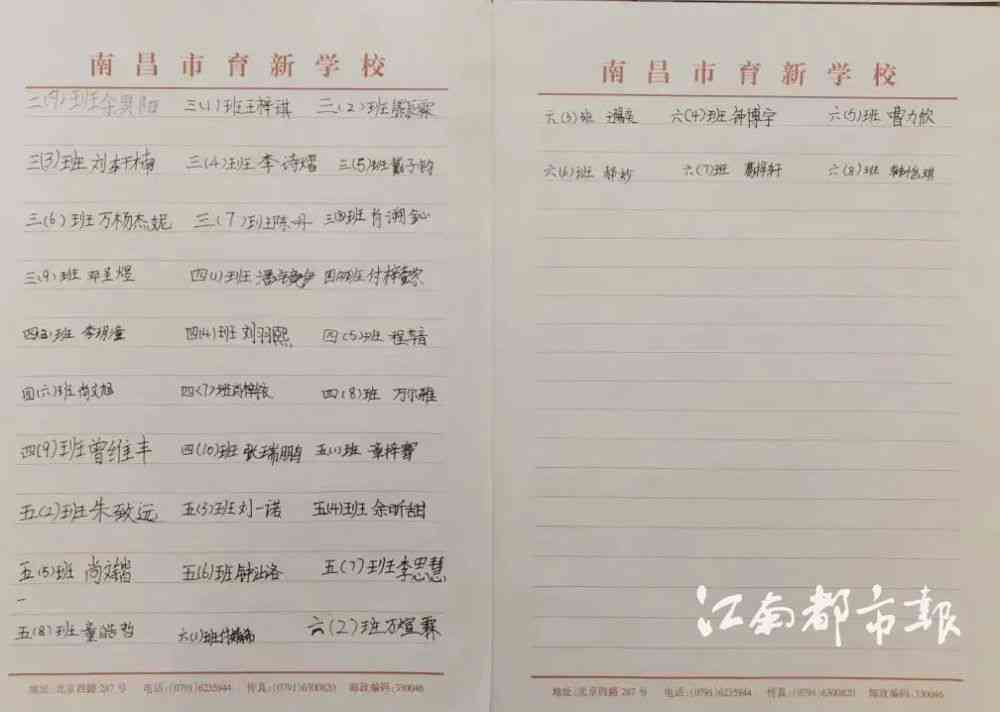 南昌市育新学校
二(9)班 余昊阳 三(1)班 王梓琪 三(2)班
三(3)班 刘轩楠 三(4)班 李诗熠 三(5)班 戴子钧
三(6)班 万杨杰妮 三(7)班 陈丹 三(8)班 肖溯
三(9)班 邓呈煜 四(1)班 四(2)班 付梓
四(3)班 李玥潼 四(4)班 刘羽熙 四(5)班 程音
四(六)班 尚文旭 四(7)班 肖梓 四(8)班 万尔雅
四(9)班 曾维丰 四(10)班 张瑞鹏 五(1)班 章梓睿
五(2)班 朱致远 五(3)班 刘一诺 五(4)班 余昕甜
五(5)班 尚 五(6)班 钟沁洛 五(7)班 李思慧
五(8)班 童皓哲 六(1)班 六(2)班 万煊霖
地址:北京四路287号 电话:(0791)6235944 传真:(0791)6300820 邮政编码:330046
南昌市育新学校
六(3)班 六(4)班 钟博宇 六(5)班 曹力欣
六(6)班 郝妙 六(7)班 葛梓轩 六(8)班
江南都市报
地址:北京四路287号 电话:(0791)6235944 传真:(0791)6300820 邮政编码:330046